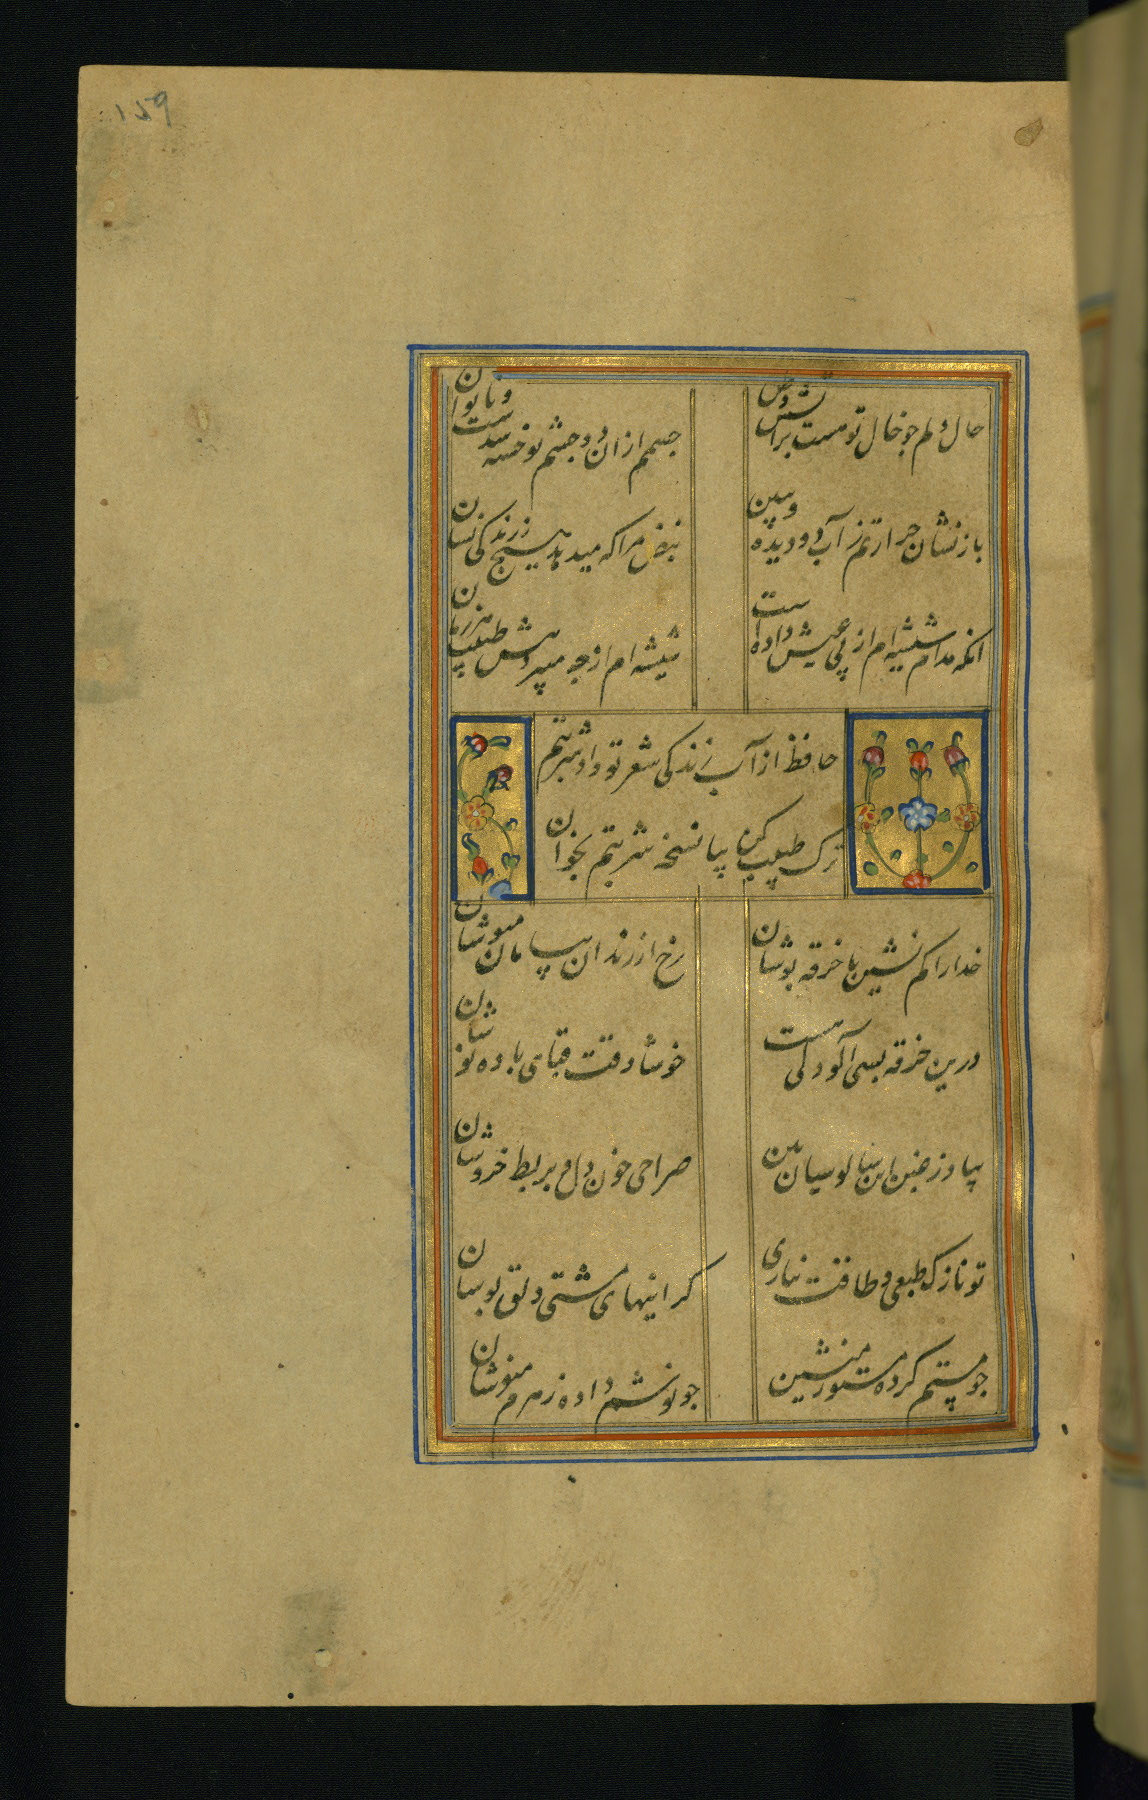 ۱۵۹
حال دلم جو خال تو هست بر آتشش وطن
جسمم ازان دو جشم تو خسته شدست و ناتوان
باز نشان حرارتم ز آب دو دیده و ببین
نبض مرا که میدهد هیچ ز زندکی نشان
انکه مدام شیشه ام از پی عیش داده است
شیشه ام از جه میبرد پیش طبیب هر زمان
حافظ از آب زندکی شعر تو داد شربتم
ترک طبیب کن بیا نسخه شربتم بخوان
خدارا کم نشین با خرقه پوشان
رخ از رندان بی سامان مپوشان
درین خرقه بسی آلودکی هست
خوشا وقت قبای باده نوشان
بیا وز غبن این سالوسیان بین
صراحی خون دل و بربط خروشان
تو نازک طبعی و طاقت نیاری
کرانیهای مشتی دلق پوشان
جو مستم کرده مستور منشین
جو نوشم داده زهرم منوشان